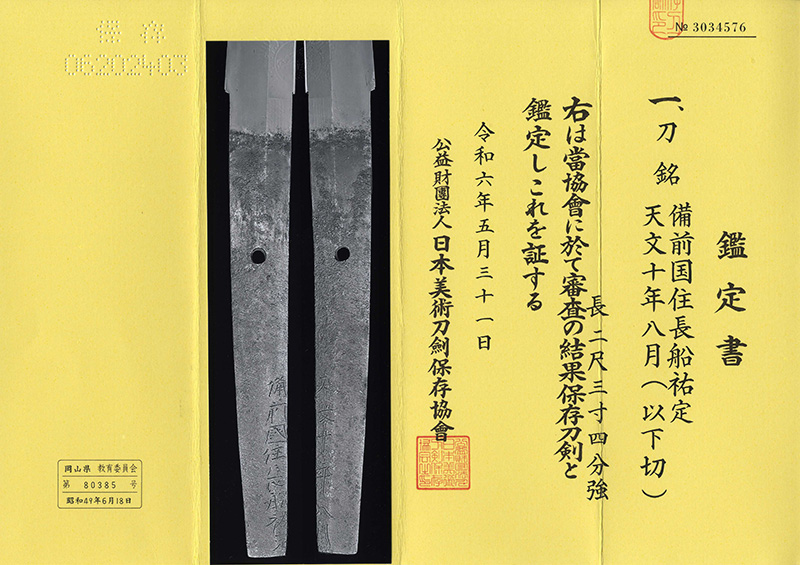 № 3034576
鑑定書
一、刀 銘 備前国住長船祐定
天文十年八月(以下切)
長二尺三寸四分強
右は當協會に於て審査の結果保存刀剣と
鑑定しこれを証する
令和六年五月三十一日
公益財團法人 日本美術刀劍保存協會
保存
06202403
備前國住長船祐
岡山県 教育委員会
第 80385 号
昭和49年6月18日